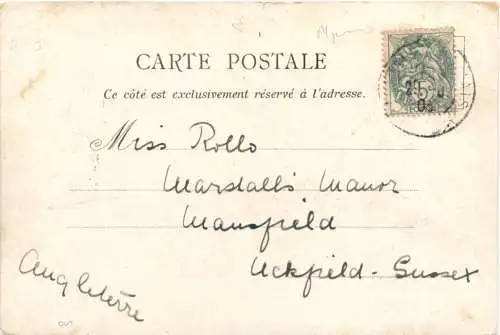 CARTE POSTALE
Ce côté est exclusivement réservé à l'adresse.
Miss Rollo
Marshalls Manor
Mansfield
Uckfield - Sussex
Angleterre
5